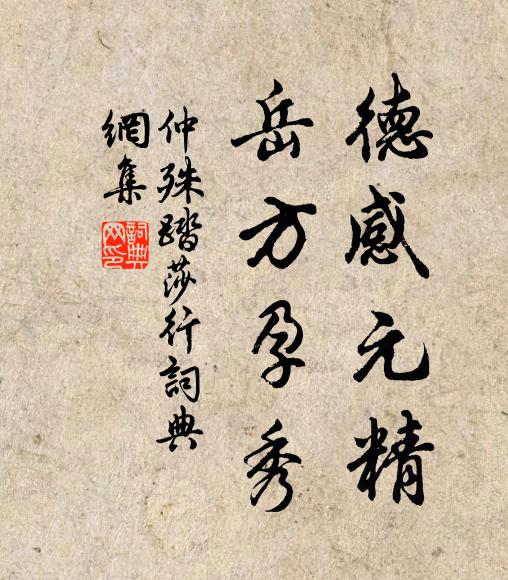 德感元精
岳方孕秀
仲殊踏莎行詞典
網集
詞典
网印